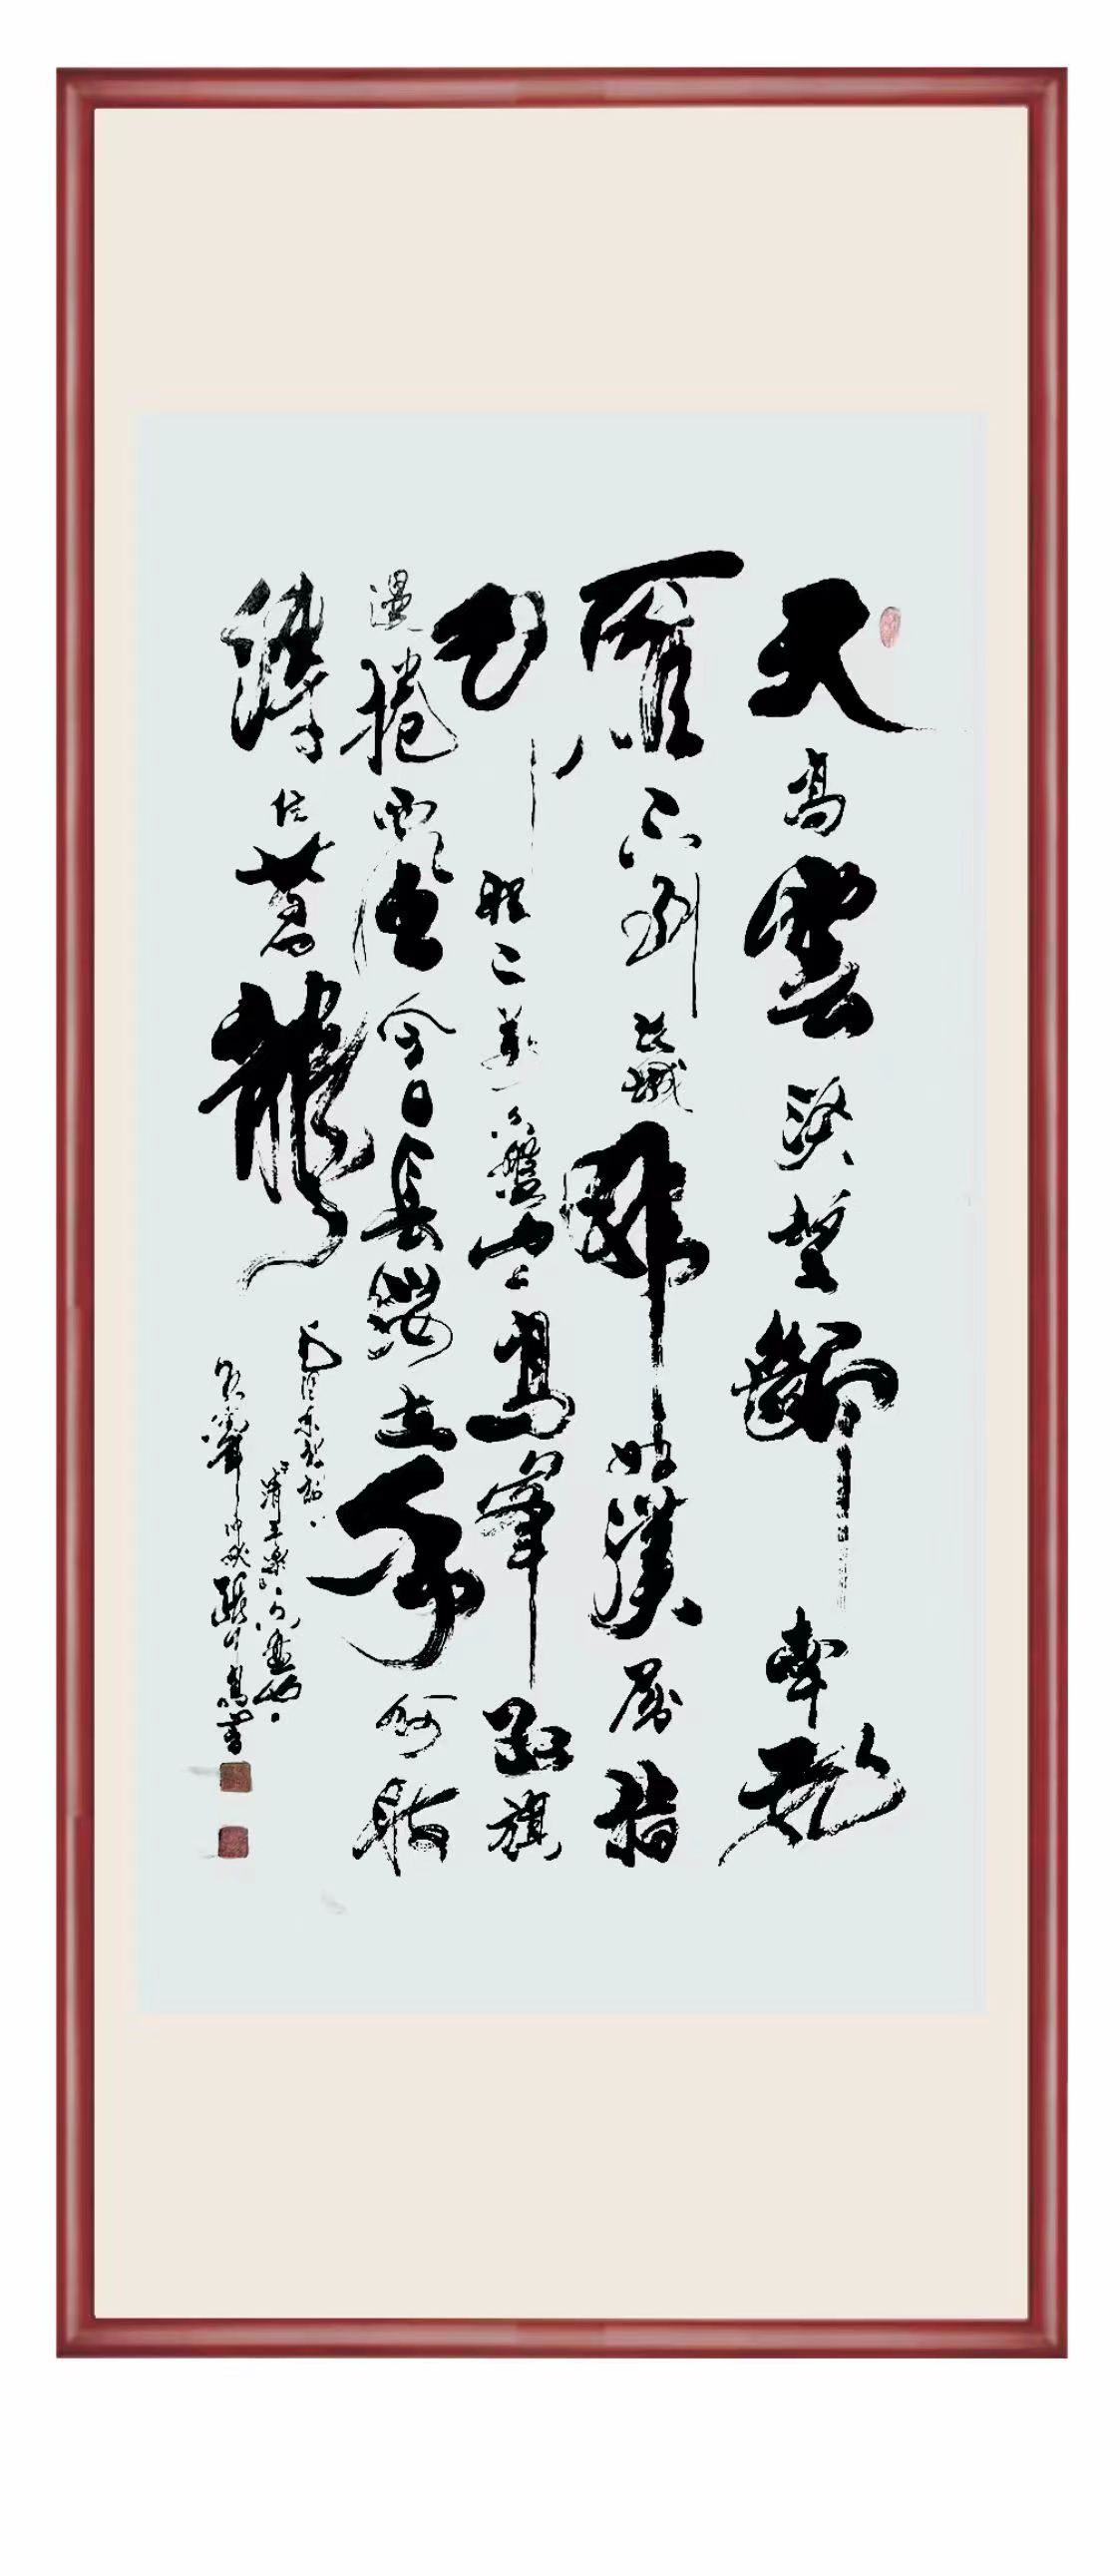 天高雲淡望斷南飛
雁不到長城非好漢屈指
行程二萬六盤山上高峰紅旗
漫捲西風今日長纓在手何時
縛住蒼龍
毛澤東
清平樂六盤山
張
書